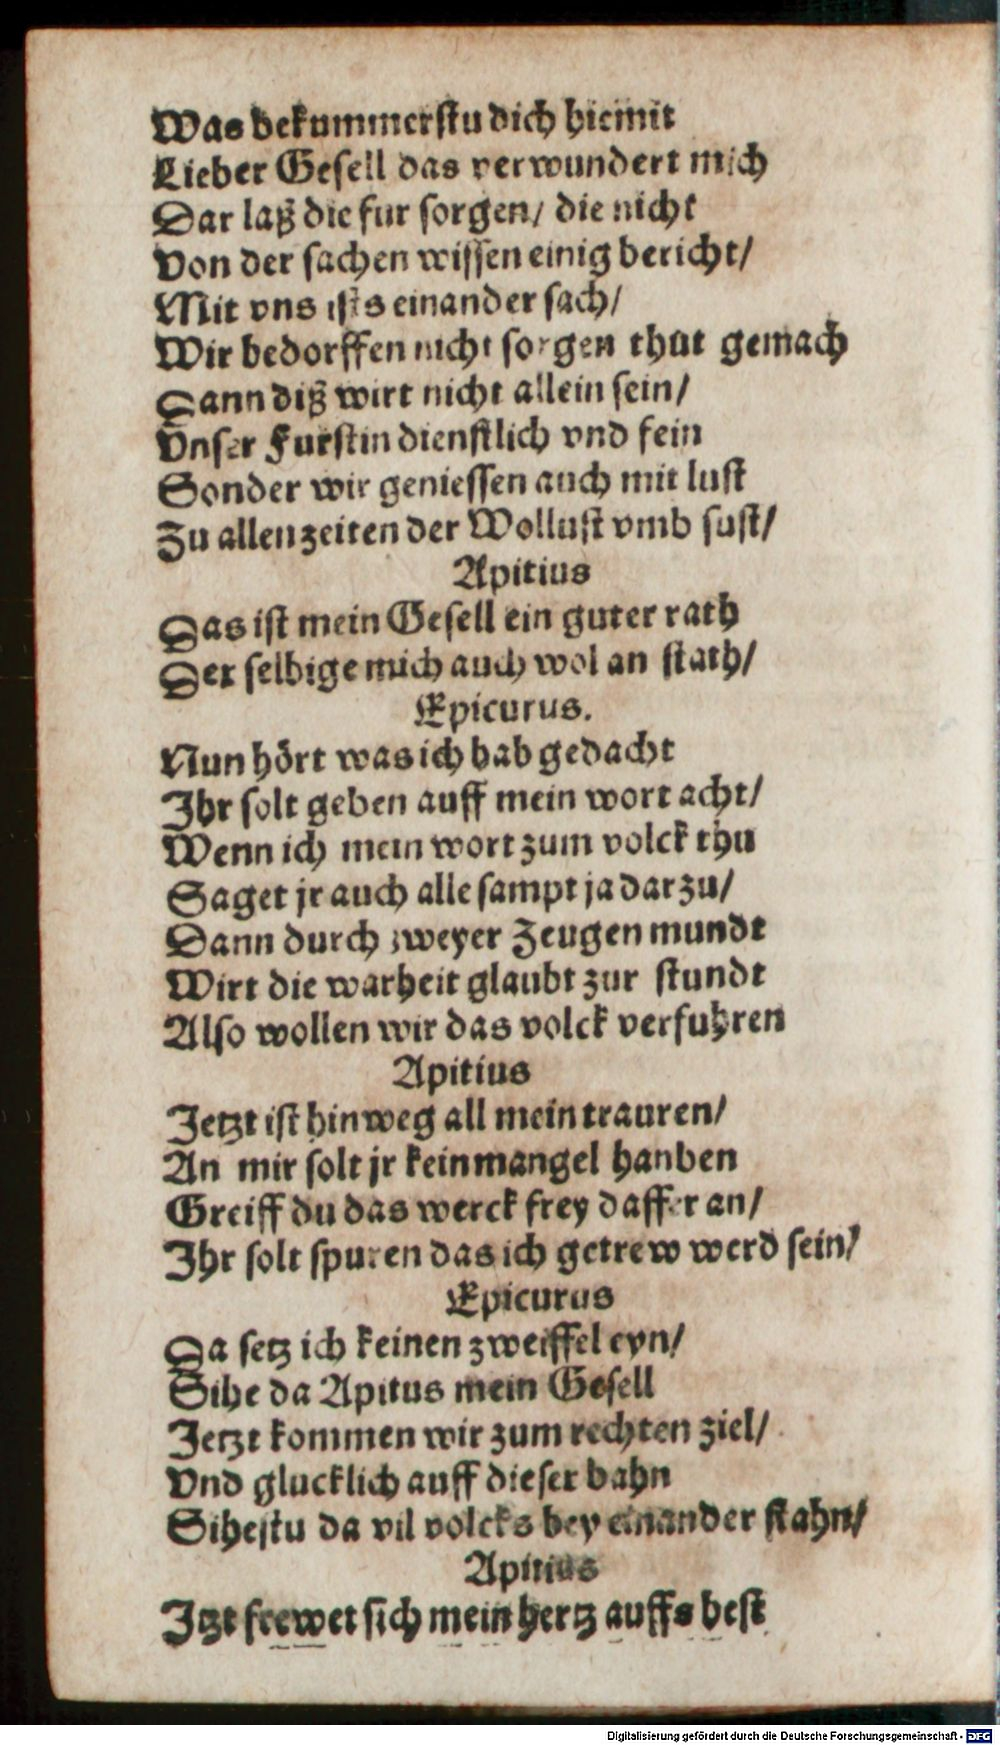 Was bekummerstu dich hiemit
Lieber Gesell das verwundert mich
Dar laß die fur sorgen/ die nicht
Von der sachen wissen einig bericht/
Mit vns ists einander sach/
Wir bedorffen nicht sorgen thut gemach
Dann diß wirt nicht allein sein/
Vnser Furstin dienstlich vnd fein
Sonder wir geniessen auch mit lust
Zu allen zeiten der Wollust vmb sust/
Apitius
Das ist mein Gesell ein guter rath
Der selbige mich auch wol an stath/
Epicurus.
Nun hört was ich hab gedacht
Ihr solt geben auff mein wort acht/
Wenn ich mein wort zum volck thu
Saget jr auch alle sampt ja darzu/
Dann durch zweyer Zeugen mundt
Wirt die warheit glaubt zur stundt
Also wollen wir das volck verfuhren
Apitius
Jetzt ist hinweg all mein trauren/
An mir solt jr kein mangel hanben
Greiff du das werck frey daffer an/
Ihr solt spuren das ich getrew werd sein/
Epicurus
Da setz ich keinen zweiffel eyn/
Sihe da Apitus mein Gesell
Jetzt kommen wir zum rechten ziel/
Vnd glucklich auff dieser bahn
Sihestu da vil volcks bey einander stahn/
Apitius
Itzt frewet sich mein hertz auffs best
Digitalisierung gefördert durch die Deutsche Forschungsgemeinschaft - DFG